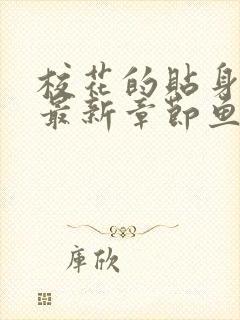 校花的贴身
最新章节鱼
库欣